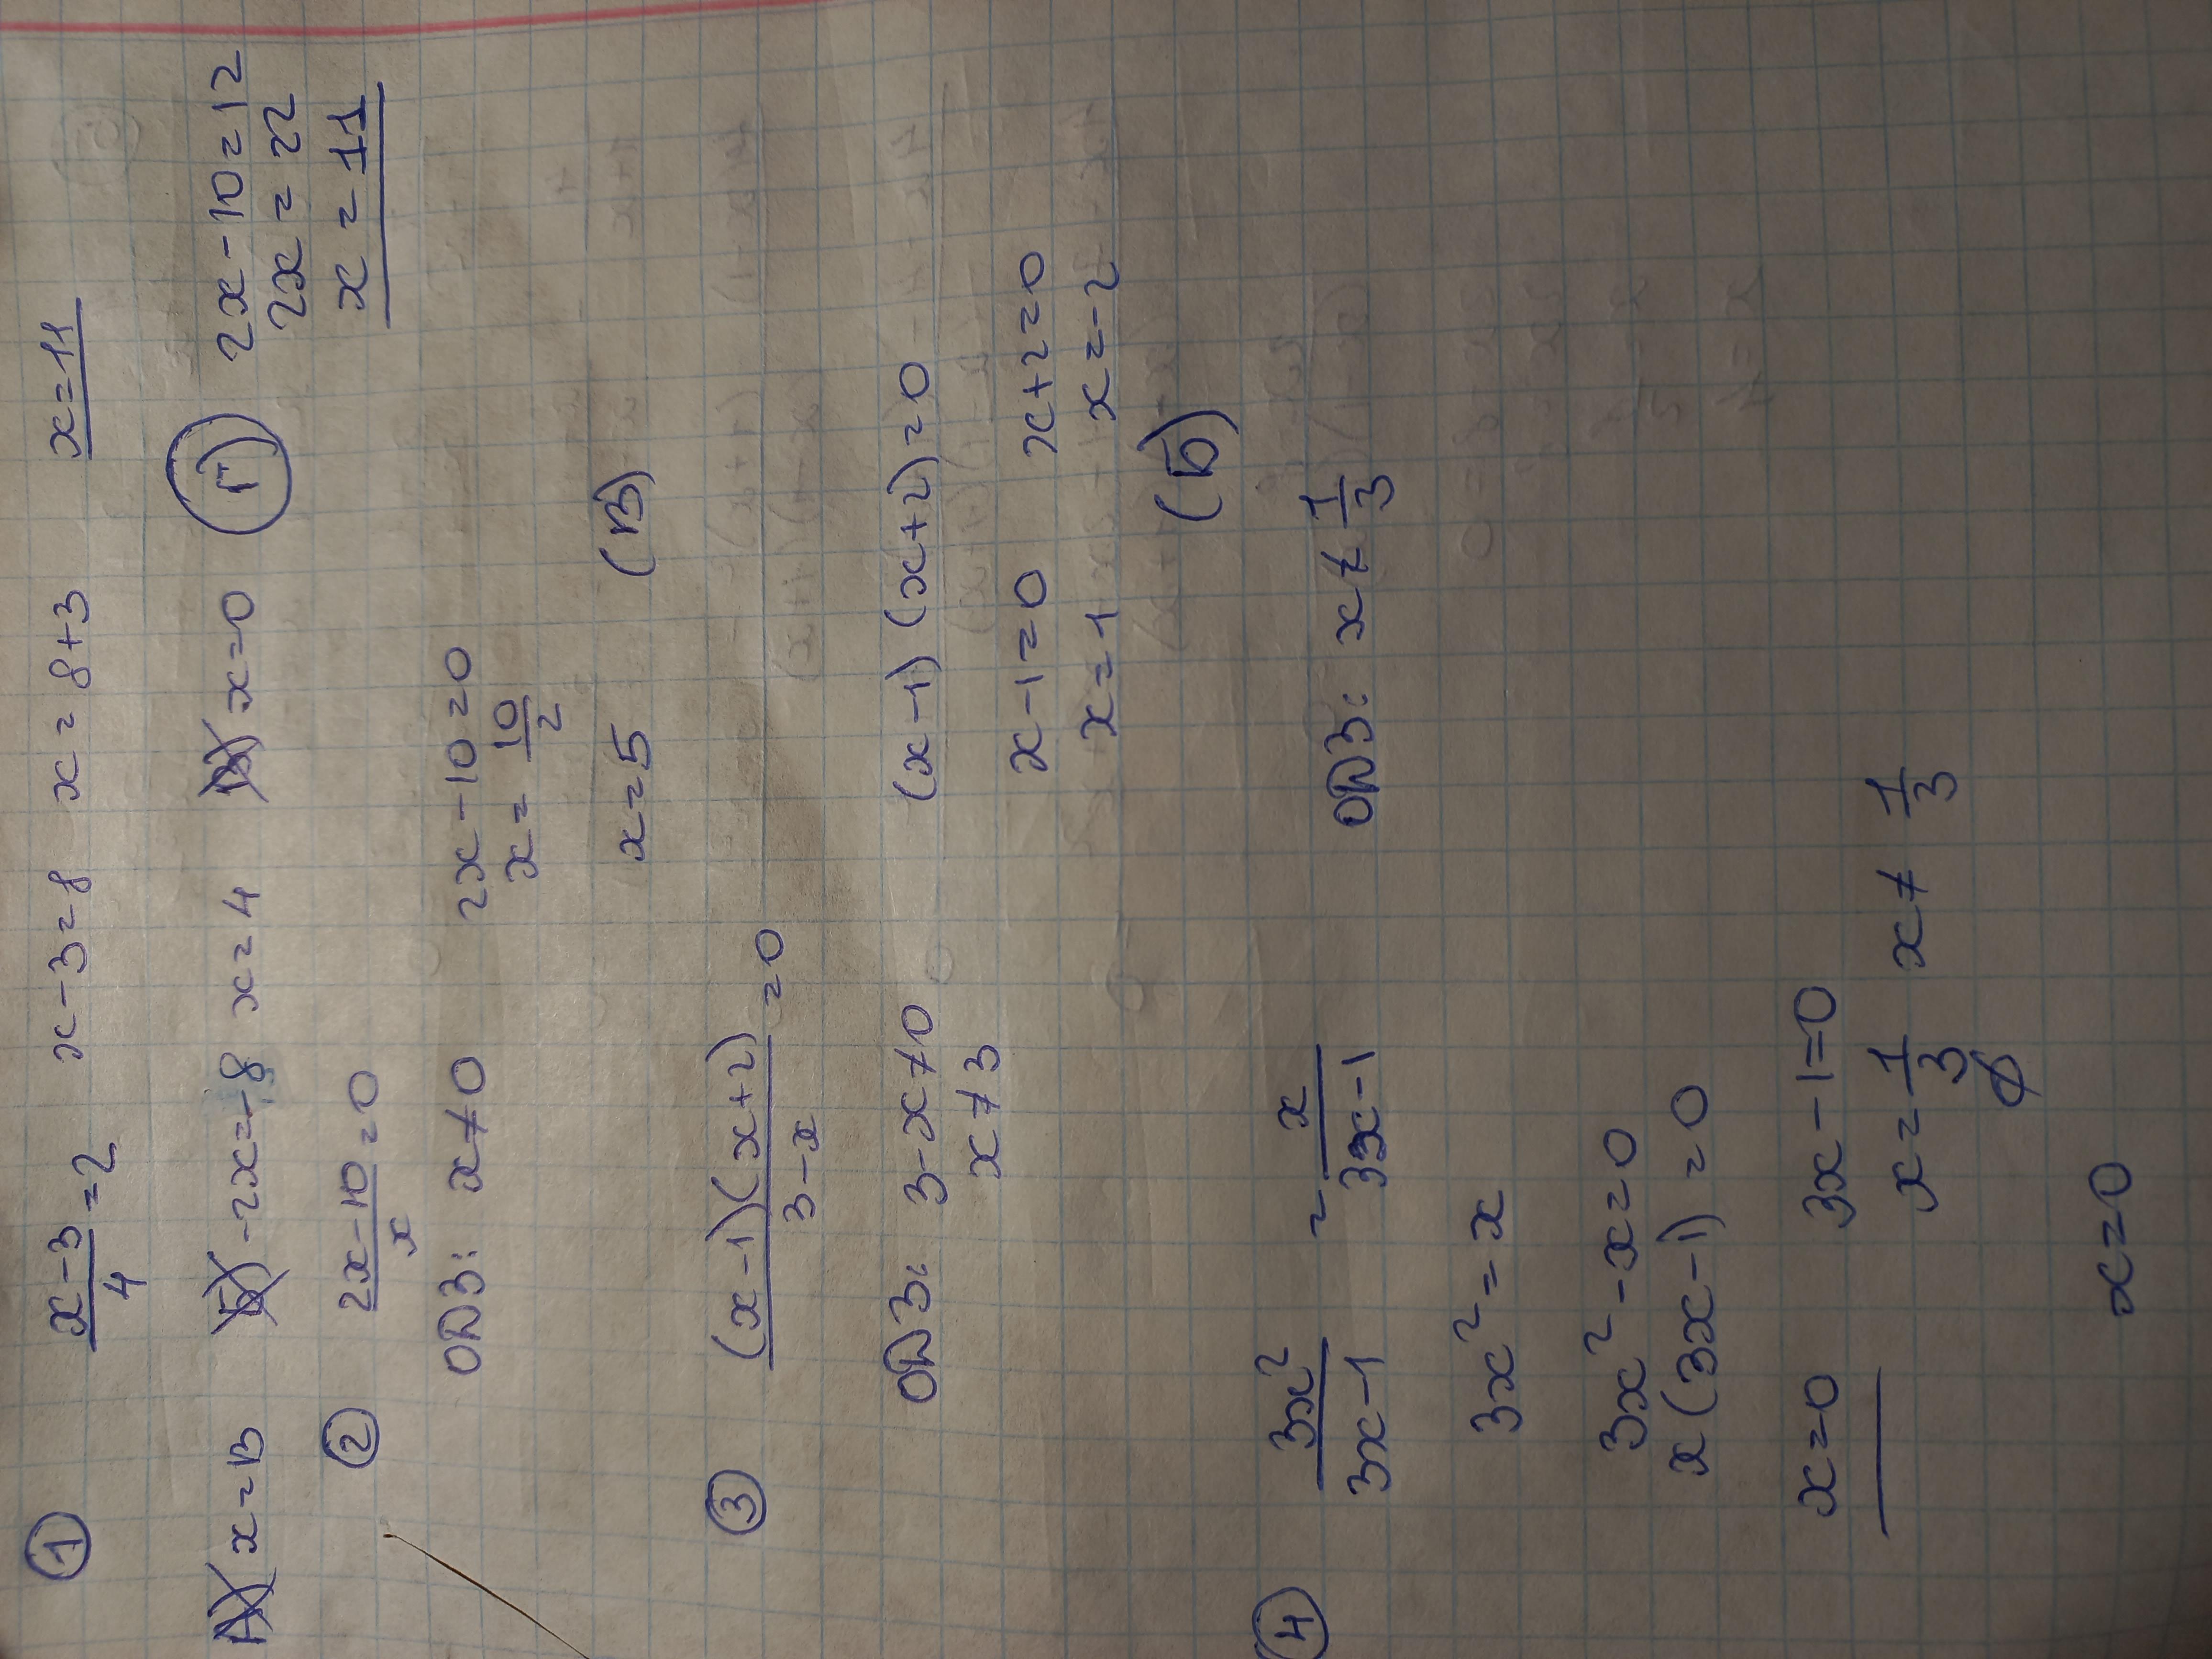 ① (x-3)/4 = 2 x-3=8 x=8+3 x=11
А) x=13 Б) -2x=-8 x=4 В) x=0 Г) 2x-10=12
2x=22
x=11
② (2x-10)/x = 0
ОДЗ: x≠0 2x-10=0
x=10/2
x=5 (В)
③ ((x-1)(x+2))/(3-x) = 0
ОДЗ: 3-x≠0 (x-1)(x+2)=0
x≠3 x-1=0 x+2=0
x=1 x=-2
(Б)
④ 3x²/(3x-1) = x/(3x-1) ОДЗ: x≠1/3
3x²=x
3x²-x=0
x(3x-1)=0
x=0 3x-1=0
x=1/3 x≠1/3
∅
x=0